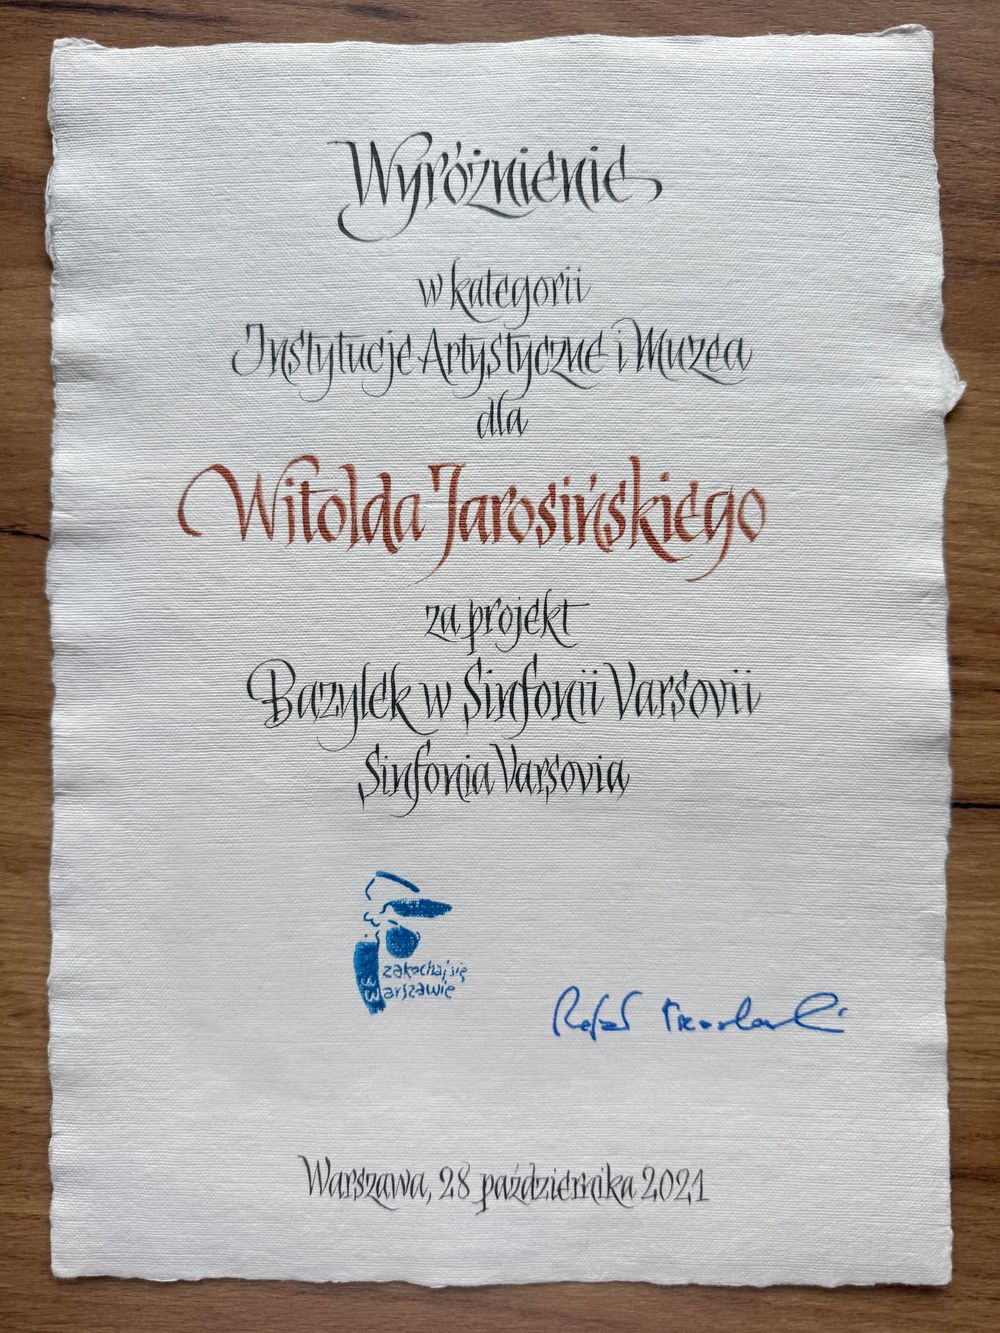 Wyróżnienie
w kategorii
Instytucje Artystyczne i Muzea
dla
Witolda Jarosińskiego
za projekt
Bazylek w Sinfonii Varsovii
Sinfonia Varsovia
zakochaj się
w warszawie
Rafał
Warszawa, 28 października 2021